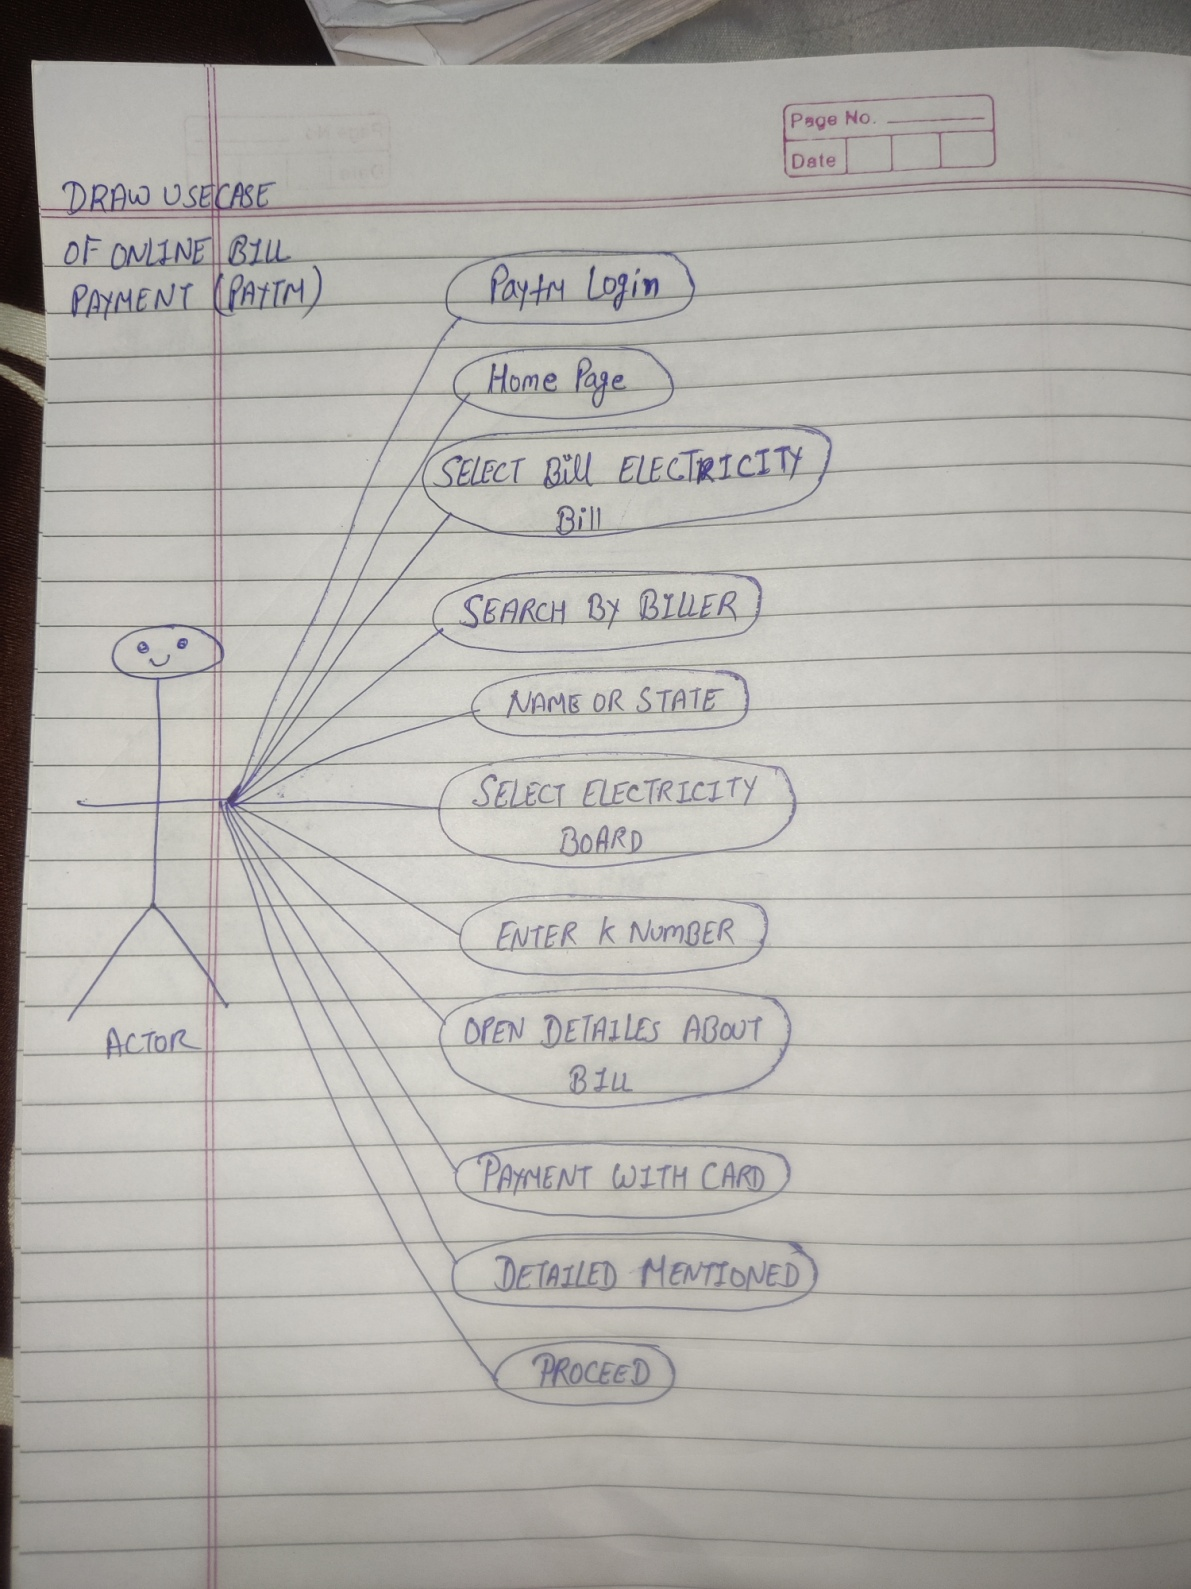 Page No.
Date
DRAW USECASE
OF ONLINE BILL
PAYMENT (PAYTM)
Paytm Login
Home Page
SELECT Bill ELECTRICITY
Bill
SEARCH BY BILLER
NAME OR STATE
SELECT ELECTRICITY
BOARD
ENTER K NUMBER
OPEN DETAILES ABOUT
BILL
ACTOR
PAYMENT WITH CARD
DETAILED MENTIONED
PROCEED